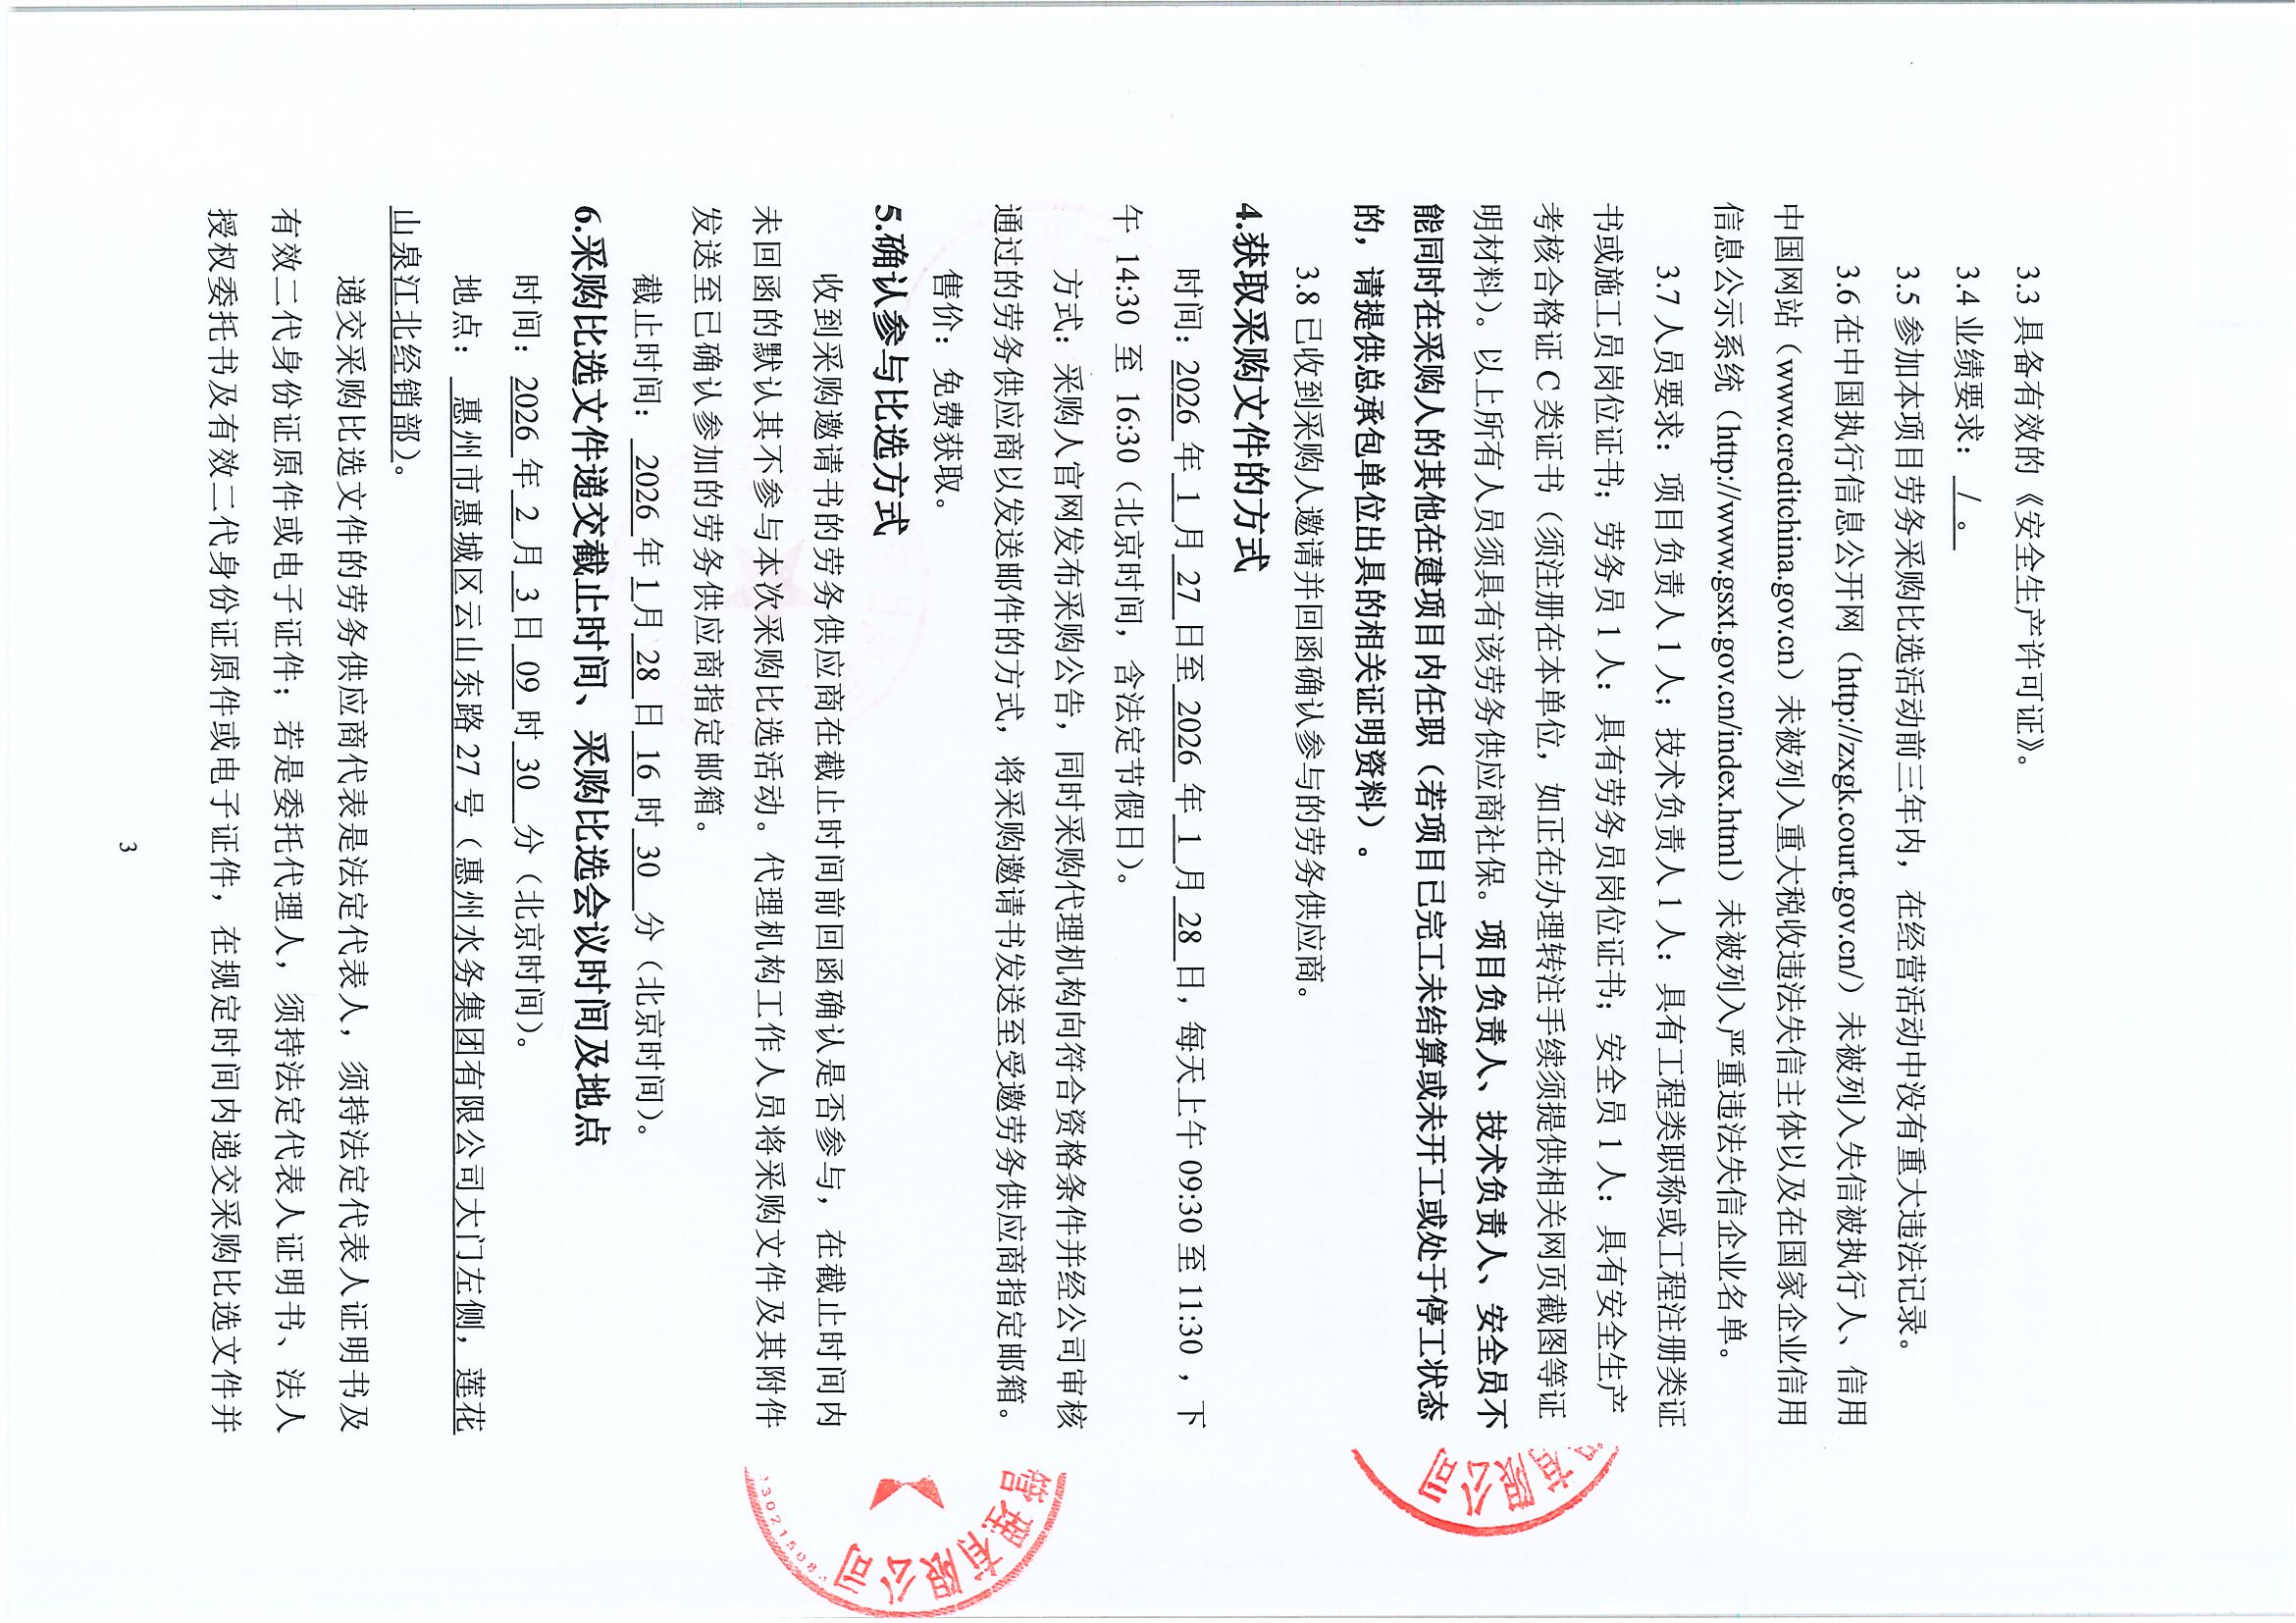 3.3 具备有效的《安全生产许可证》。
3.4 业绩要求： / 。
3.5 参加本项目劳务采购比选活动前三年内，在经营活动中没有重大违法记录。
3.6 在中国执行信息公开网（http://zxgk.court.gov.cn/）未被列入失信被执行人、信用
中国网站（www.creditchina.gov.cn）未被列入重大税收违法失信主体以及在国家企业信用
信息公示系统（http://www.gsxt.gov.cn/index.html）未被列入严重违法失信企业名单。
3.7 人员要求：项目负责人 1 人；技术负责人 1 人：具有工程类职称或工程注册类证
书或施工员岗位证书；劳务员 1 人：具有劳务员岗位证书；安全员 1 人：具有安全生产
考核合格证 C 类证书（须注册在本单位，如正在办理转注手续须提供相关网页截图等证
明材料）。以上所有人员须具有该劳务供应商社保。项目负责人、技术负责人、安全员不
能同时在采购人的其他在建项目内任职（若项目已完工未结算或未开工或处于停工状态
的，请提供总承包单位出具的相关证明资料）。
3.8 已收到采购人邀请并回函确认参与的劳务供应商。
4.获取采购文件的方式
时间：2026 年 1 月 27 日至 2026 年 1 月 28 日，每天上午 09:30 至 11:30 ，下
午 14:30 至 16:30（北京时间，含法定节假日）。
方式：采购人官网发布采购公告，同时采购代理机构向符合资格条件并经公司审核
通过的劳务供应商以发送邮件的方式，将采购邀请书发送至受邀劳务供应商指定邮箱。
售价：免费获取。
5.确认参与比选方式
收到采购邀请书的劳务供应商在截止时间前回函确认是否参与，在截止时间内
未回函的默认其不参与本次采购比选活动。代理机构工作人员将采购文件及其附件
发送至已确认参加的劳务供应商指定邮箱。
截止时间： 2026 年 1 月 28 日 16 时 30 分（北京时间）。
6.采购比选文件递交截止时间、采购比选会议时间及地点
时间：2026 年 2 月 3 日 09 时 30 分（北京时间）。
地点： 惠州市惠城区云山东路 27 号（惠州水务集团有限公司大门左侧，莲花
山泉江北经销部）。
递交采购比选文件的劳务供应商代表是法定代表人，须持法定代表人证明书及
有效二代身份证原件或电子证件；若是委托代理人，须持法定代表人证明书、法人
授权委托书及有效二代身份证原件或电子证件，在规定时间内递交采购比选文件并
3
有限公司
管理有限公司